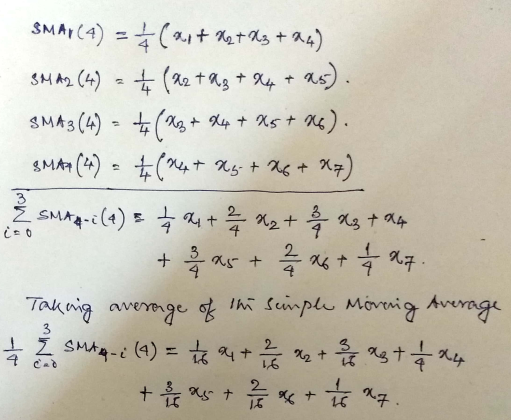 SMA₁(4) = 1/4 (x₁ + x₂ + x₃ + x₄)
SMA₂(4) = 1/4 (x₂ + x₃ + x₄ + x₅).
SMA₃(4) = 1/4 (x₃ + x₄ + x₅ + x₆).
SMA₄(4) = 1/4 (x₄ + x₅ + x₆ + x₇)
∑_{i=0}^{3} SMA₄₋ᵢ(4) = 1/4 x₁ + 2/4 x₂ + 3/4 x₃ + x₄
+ 3/4 x₅ + 2/4 x₆ + 1/4 x₇.
Taking average of the Simple Moving Average
1/4 ∑_{i=0}^{3} SMA₄₋ᵢ(4) = 1/16 x₁ + 2/16 x₂ + 3/16 x₃ + 1/4 x₄
+ 3/16 x₅ + 2/16 x₆ + 1/16 x₇.